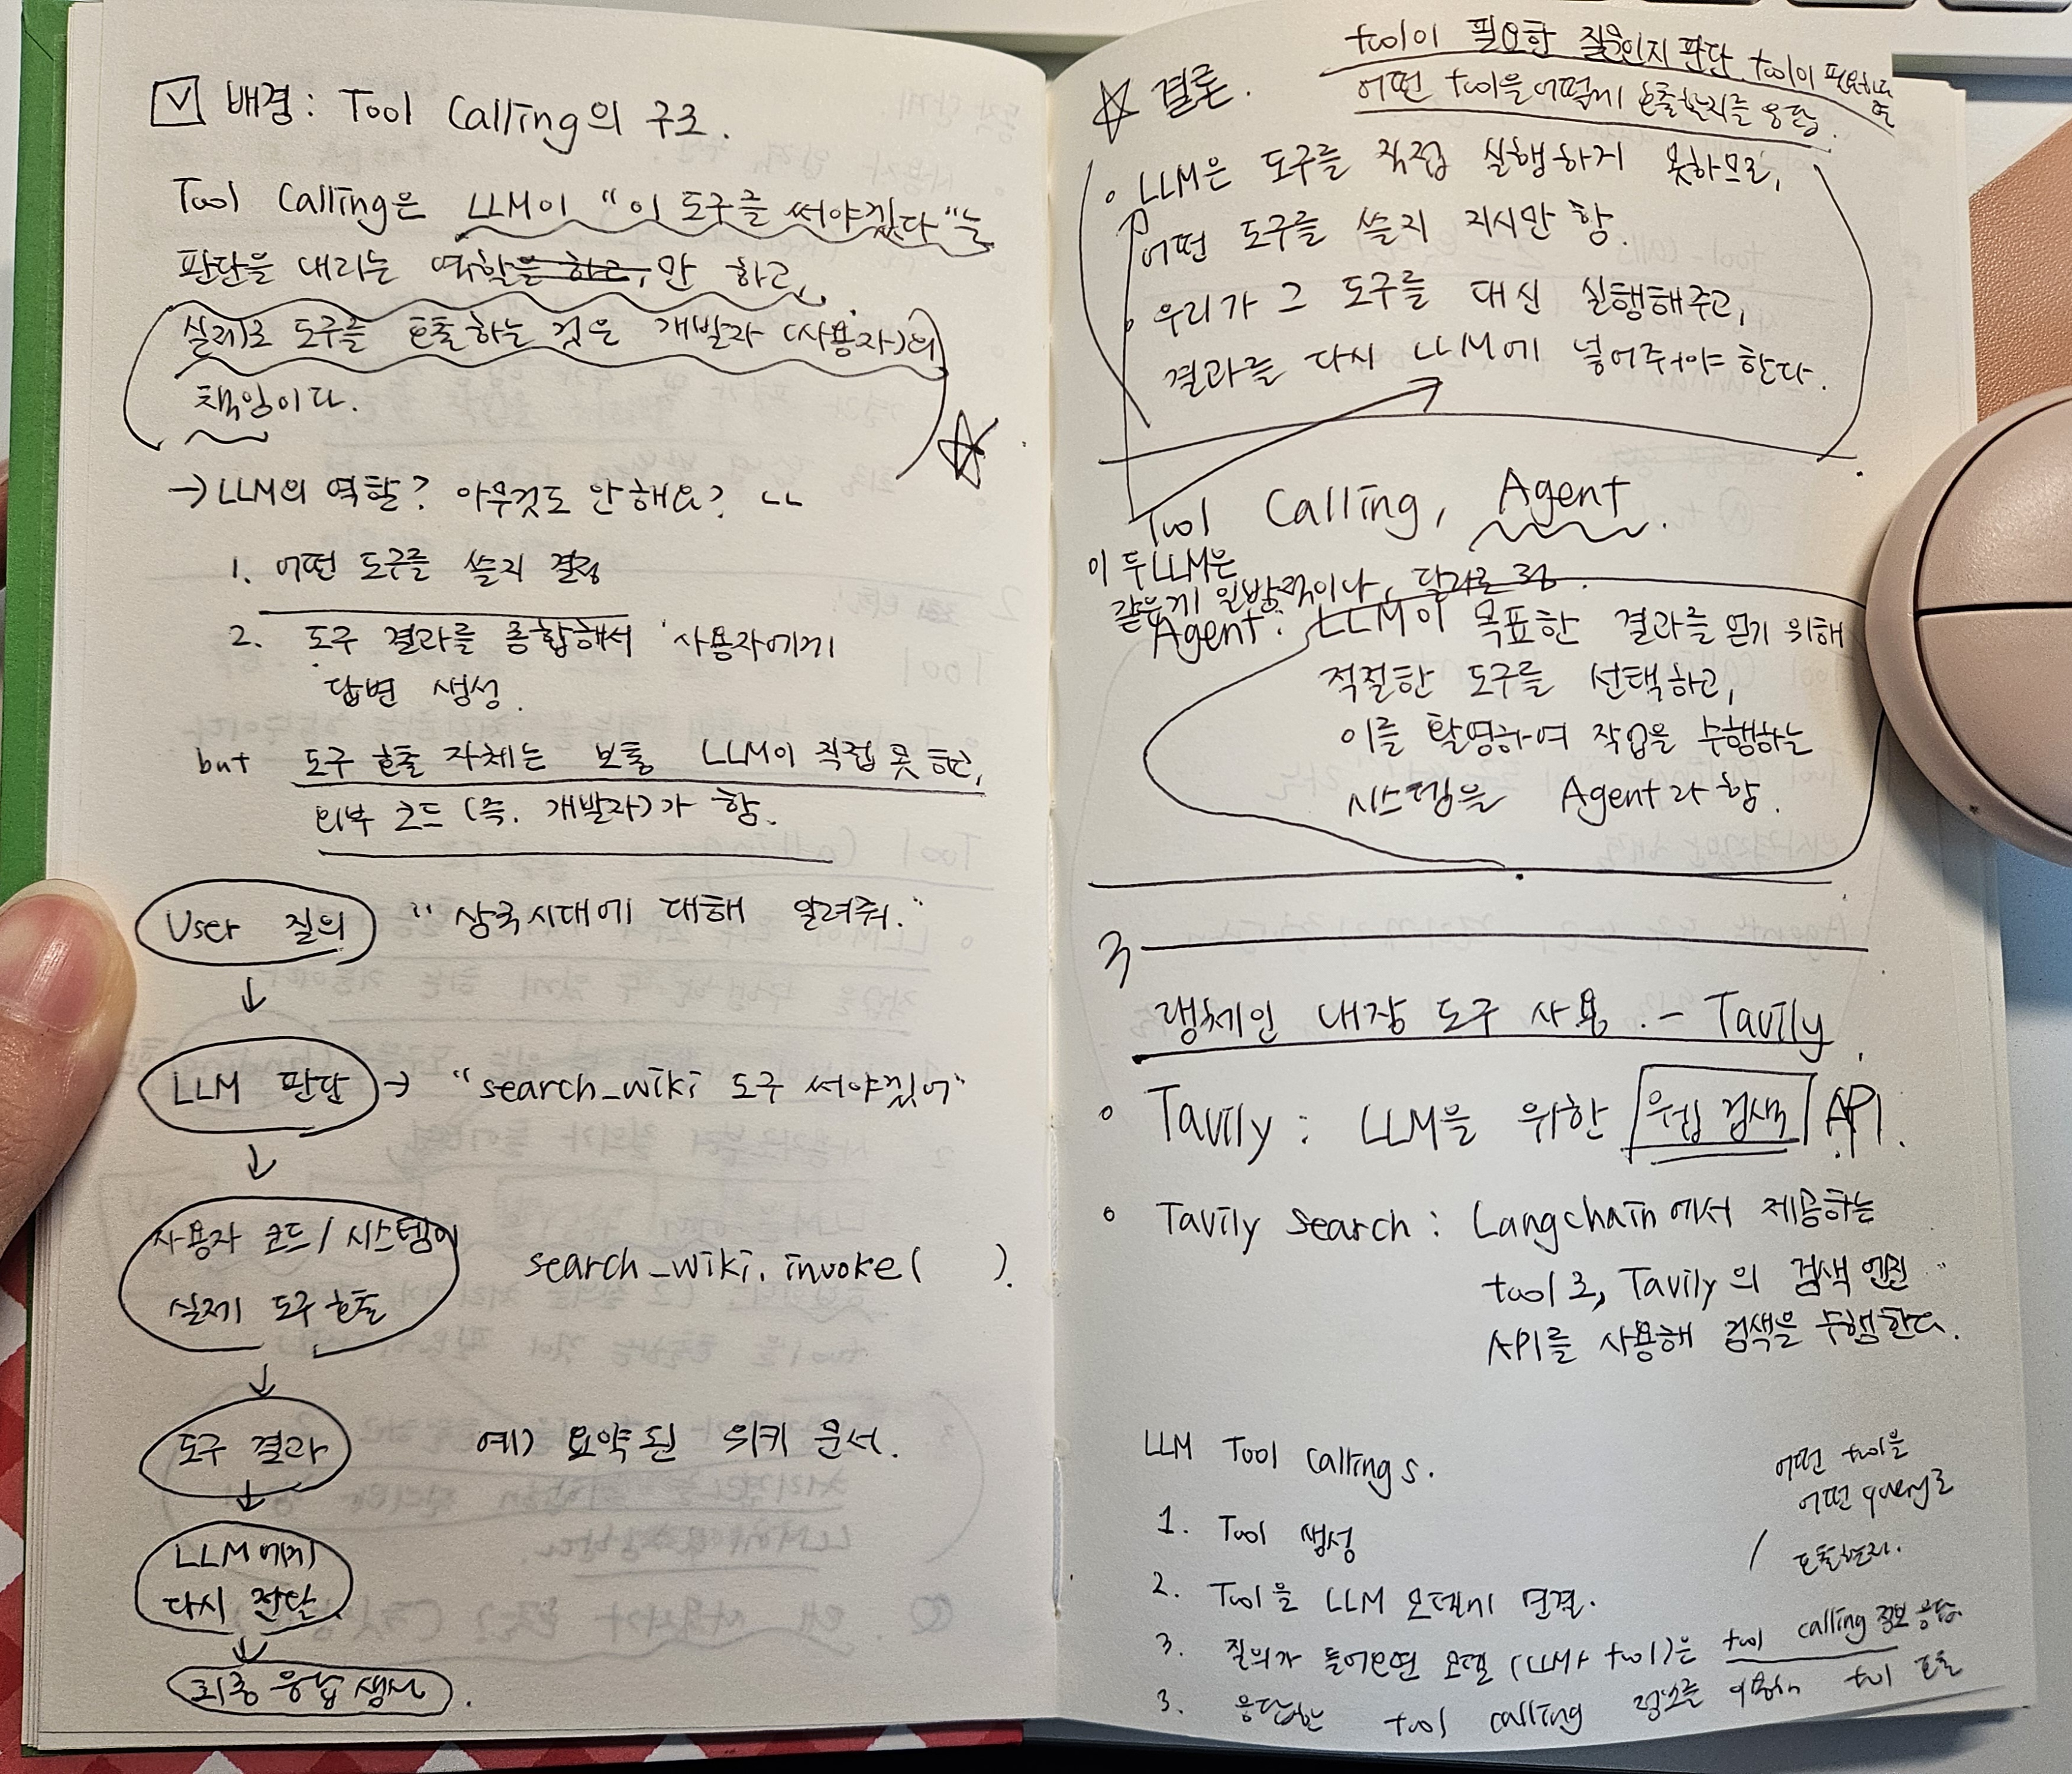 배경: Tool Calling의 구조.
Tool Calling은 LLM이 "이 도구를 써야겠다"는
판단을 내리는 역할을 하고, 만 하고,
실제로 도구를 호출하는 것은 개발자 (사용자)의
책임이다.
→ LLM의 역할? 아무것도 안해요? ㄴㄴ
1. 어떤 도구를 쓸지 결정
2. 도구 결과를 종합해서 사용자에게
답변 생성.
but 도구 호출 자체는 보통 LLM이 직접 못 하고,
외부 코드 (즉. 개발자)가 함.
User 질의 "삼국시대에 대해 알려줘."
↓
LLM 판단 → "search_wiki 도구 써야겠어"
↓
사용자 코드 / 시스템이
실제 도구 호출 search_wiki.invoke( ).
↓
도구 결과 예) 요약된 위키 문서.
↓
LLM에게
다시 전달
↓
최종 응답 생성.
tool이 필요한 질문인지 판단 tool이 필요하면
어떤 tool을 어떻게 호출할지를 응답.
☆ 결론.
• LLM은 도구를 직접 실행하지 못하므로,
어떤 도구를 쓸지 지시만 함.
• 우리가 그 도구를 대신 실행해주고,
결과를 다시 LLM에 넣어주어야 한다.
Tool Calling, Agent.
이 두 LLM은
같은게 일반적이나, 달라도 됨.
Agent: LLM이 목표한 결과를 얻기 위해
적절한 도구를 선택하고,
이를 활용하여 작업을 수행하는
시스템을 Agent라 함.
3
랭체인 내장 도구 사용. - Tavily
• Tavily : LLM을 위한 웹 검색 API.
• Tavily Search : Langchain에서 제공하는
tool로, Tavily의 검색 엔진
API를 사용해 검색을 수행한다.
LLM Tool Callings.
1. Tool 생성
2. Tool을 LLM 모델에 연결.
어떤 tool을
어떤 query로
호출할지.
3. 질의가 들어오면 모델 (LLM+ tool)은 tool calling 정보 응답.
3. 응답한 tool calling 정보를 이용해 tool 호출